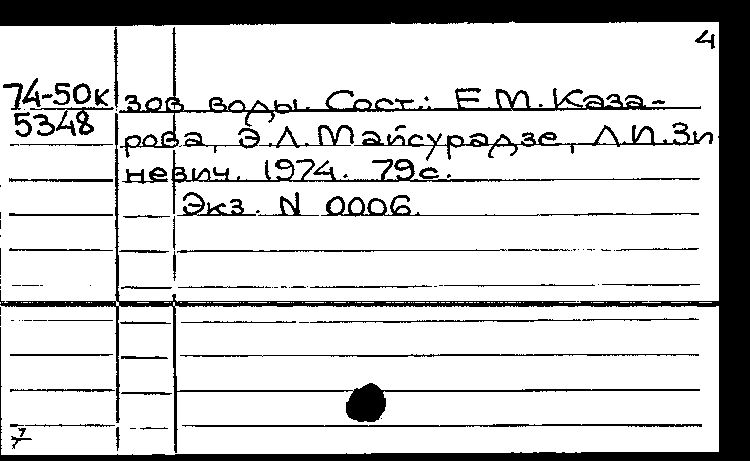 4
74-50к зов воды. Сост.: Е.М. Каза-
5348 рова, Э.Л. Майсурадзе, Л.И. Зи
невич. 1974. 79с.
Экз. N 0006.
7